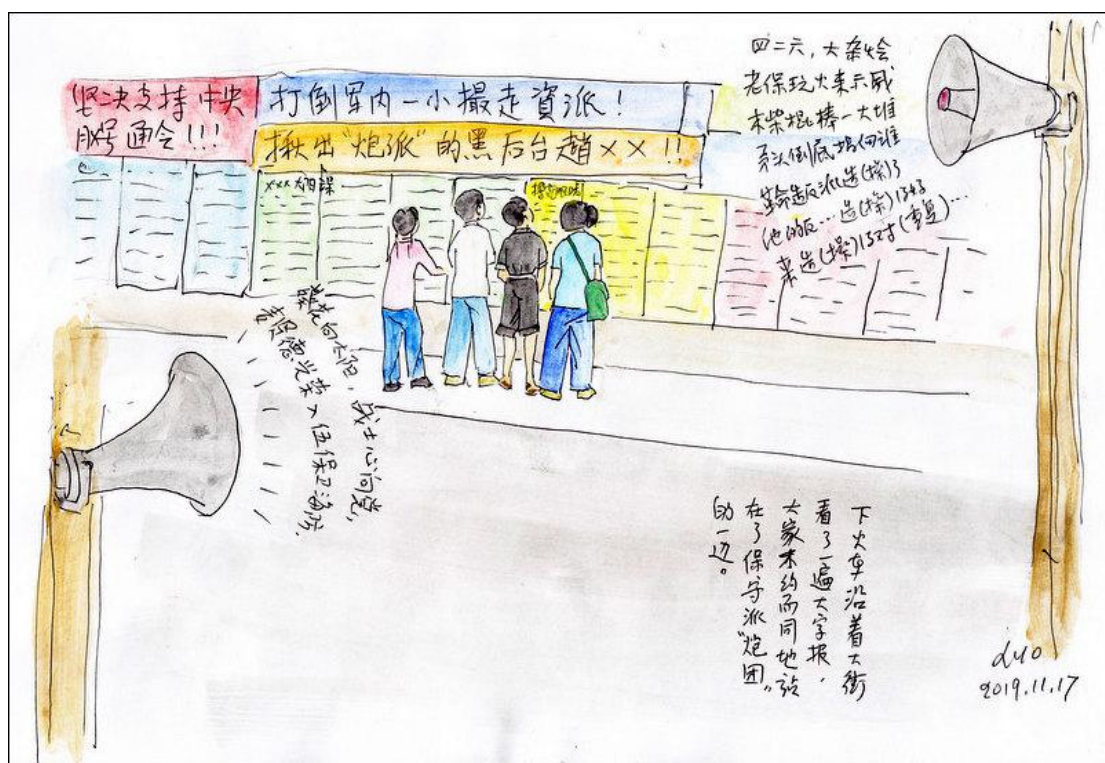 坚决支持中央
号通令!!!
打倒军内一小撮走資派!
揪出"炮派"的黑后台趙××!!
×××大阳謀
四二六,大杂烩
老保玩火来示威
木柴棍棒一大堆
倒底
造反派造(操)了
他的反…造(操)得好
来造(操)得对(重复)…
葵花向太阳,战士心向党,
光荣入伍保卫海防.
下火车沿着大街
看了一遍大字报,
大家不约而同地站
在了保守派"炮团"
的一边。
luo
2019.11.17